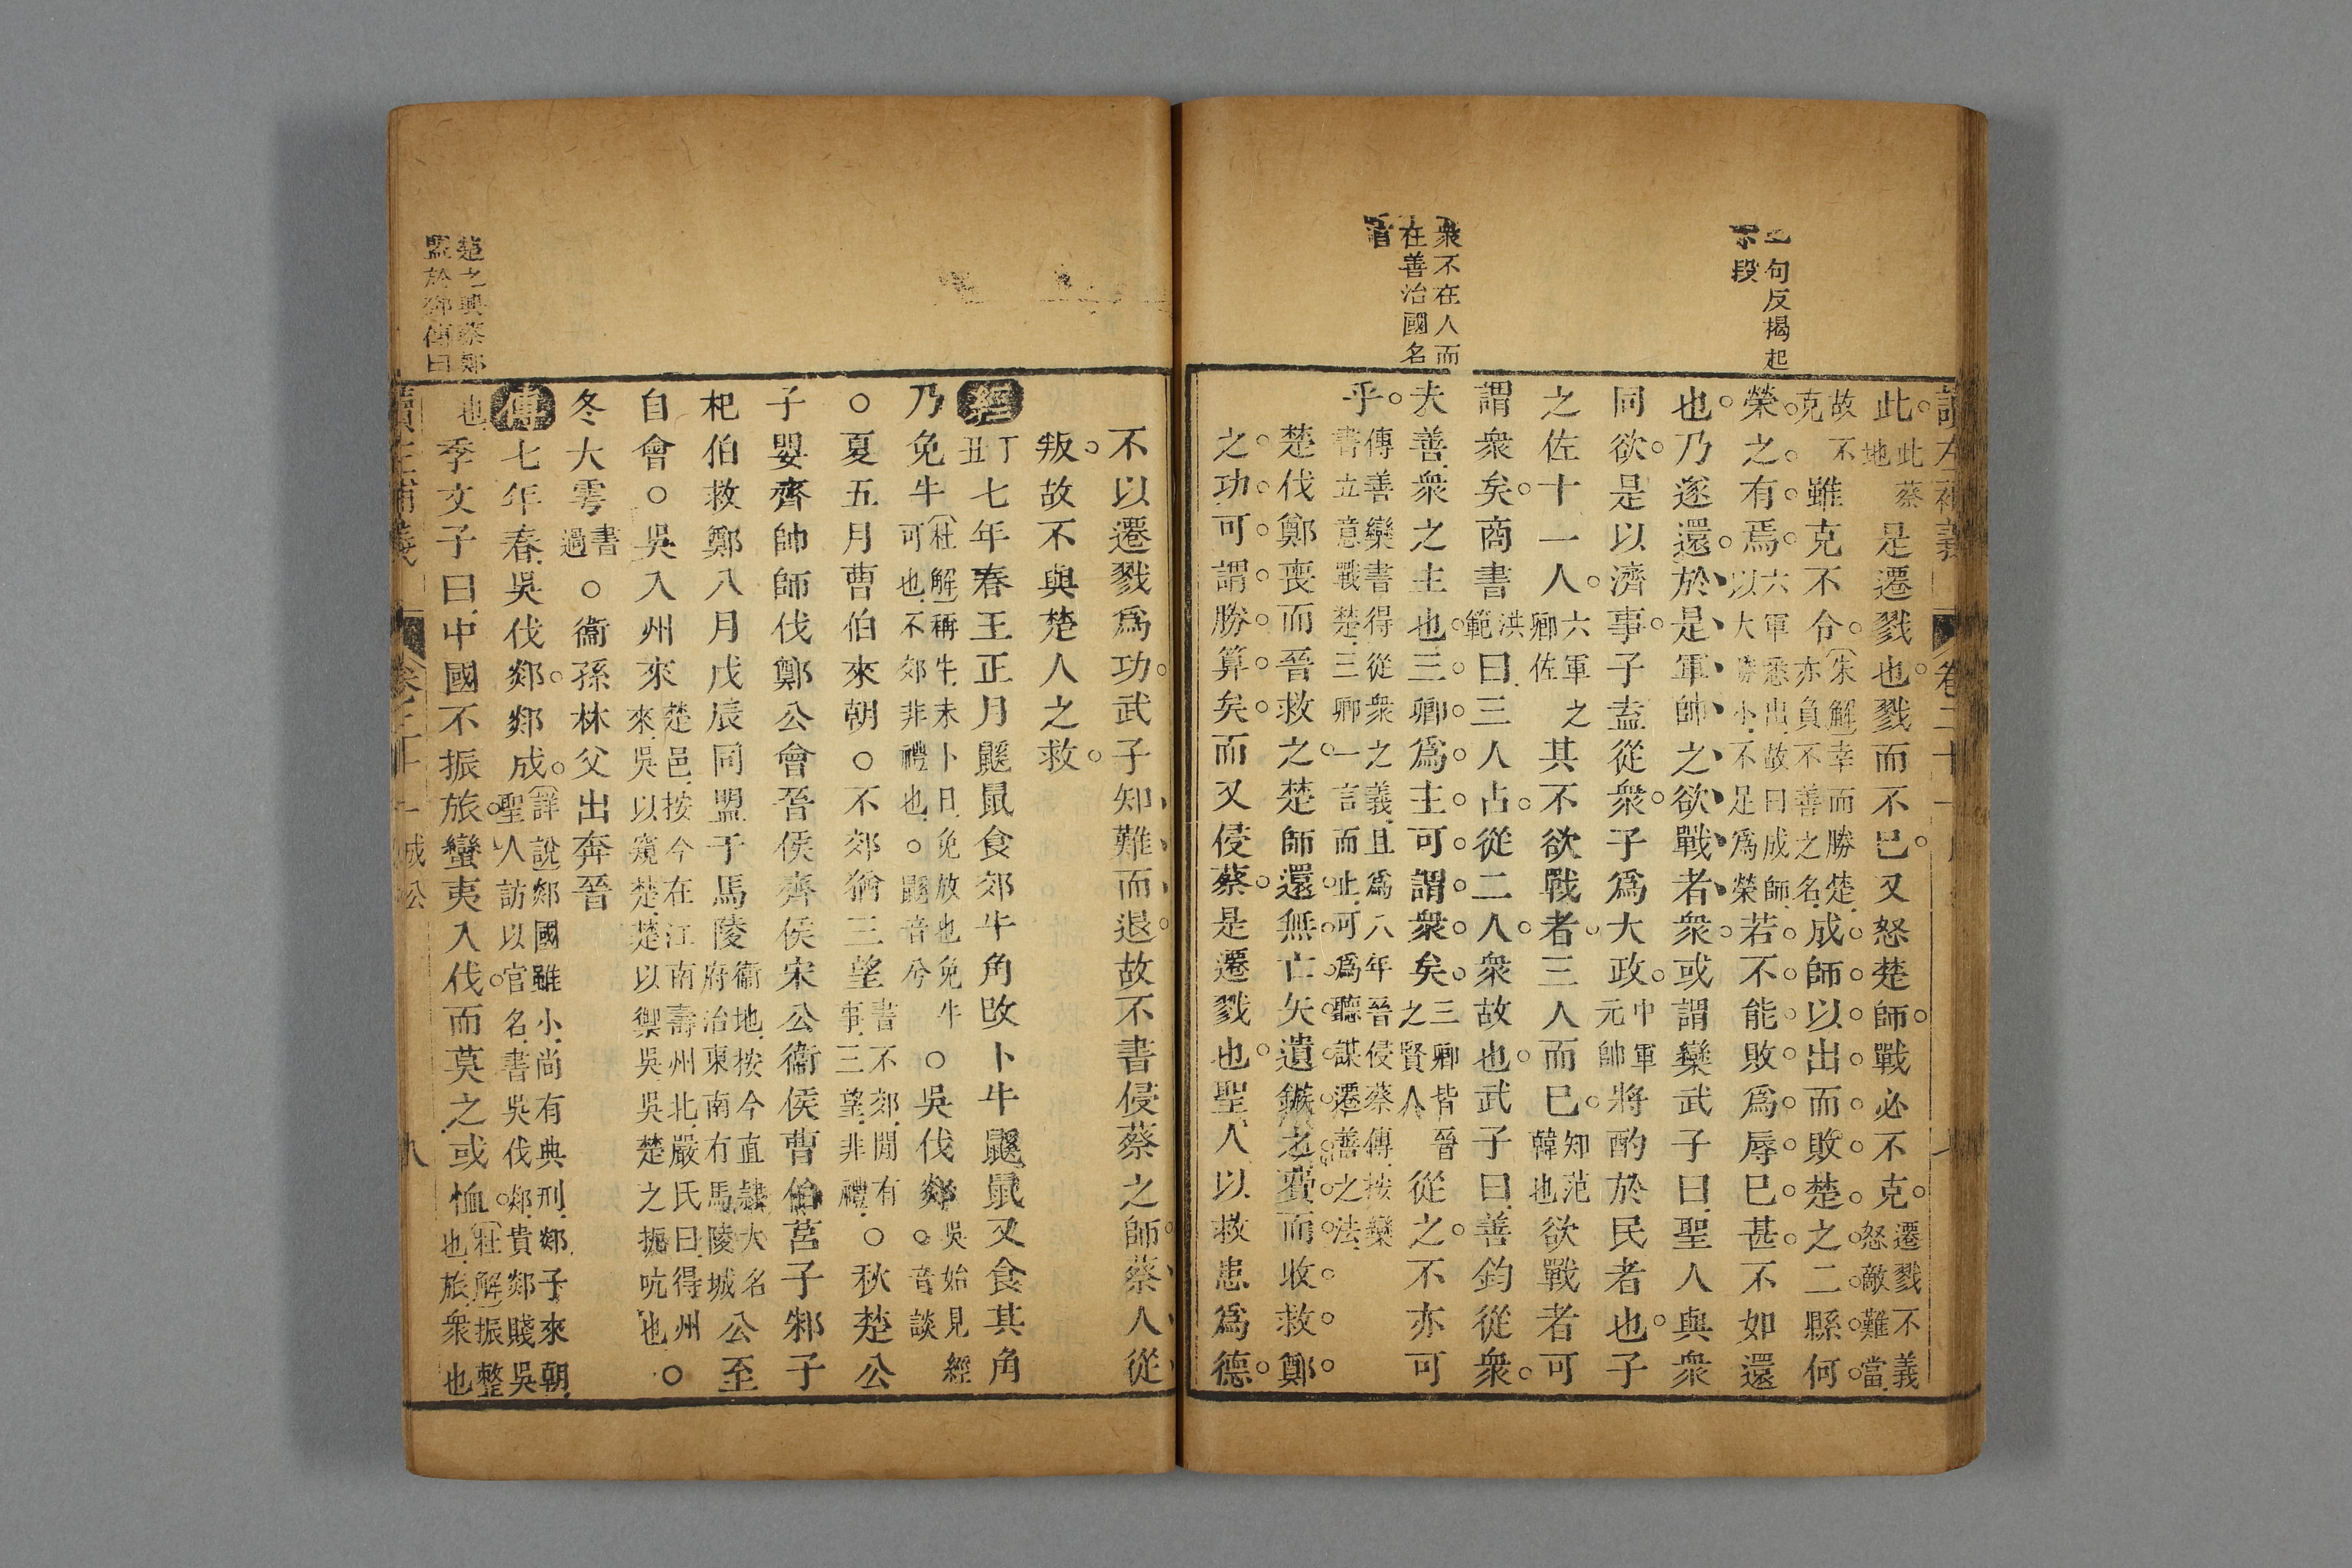 讀左補義 卷二十一
此此蔡地是遷戮也戮而不已又怒楚師戰必不克遷戮不義怒敵難當
故不克雖克不令朱解幸而勝楚亦負不善之名成師以出而敗楚之二縣何
榮之有焉六軍悉出故曰成師以大勝小不足爲榮若不能敗爲辱已甚不如還
也乃遂還於是軍帥之欲戰者衆或謂欒武子曰聖人與衆
同欲是以濟事子盍從衆子爲大政中軍元帥將酌於民者也子
之佐十一人六軍之卿佐其不欲戰者三人而已知范韓也欲戰者可
謂衆矣商書洪範曰三人占從二人衆故也武子曰善鈞從衆
夫善衆之主也三卿爲主可謂衆矣三卿皆晉之賢人從之不亦可
乎傳善欒書得從衆之義且爲八年晉侵蔡傳按欒書立意戰楚三卿一言而止可爲聽謀遷善之法
楚伐鄭喪而晉救之楚師還無亡矢遺鏃之費而收救鄭
之功可謂勝算矣而又侵蔡是遷戮也聖人以救患爲德
句反揭起
段
衆不在人而
在善治國名
不以遷戮爲功武子知難而退故不書侵蔡之師蔡人從
叛故不與楚人之救
經丁丑七年春王正月鼷鼠食郊牛角改卜牛鼷鼠又食其角
乃免牛杜解稱牛未卜日免放也免牛可也不郊非禮也○鼷音兮○吳伐郯吳始見經○音談
○夏五月曹伯來朝○不郊猶三望書不郊閒有事三望非禮○秋楚公
子嬰齊帥師伐鄭公會晉侯齊侯宋公衞侯曹伯莒子邾子
杞伯救鄭八月戊辰同盟于馬陵衞地按今直隸大名府治東南有馬陵城公至
自會○吳入州來楚邑按今在江南壽州北嚴氏曰得州來吳以窺楚楚以禦吳吳楚之扼吭也○
冬大雩書過○衞孫林父出奔晉
傳七年春吳伐郯郯成詳說郯國雖小尚有典刑郯子來朝聖人訪以官名書吳伐郯貴郯賤吳
也季文子曰中國不振旅蠻夷入伐而莫之或恤杜解振整也旅衆也
讀左補義 卷二十一 成公 八
楚之興蔡鄭
盟於鄧傳曰